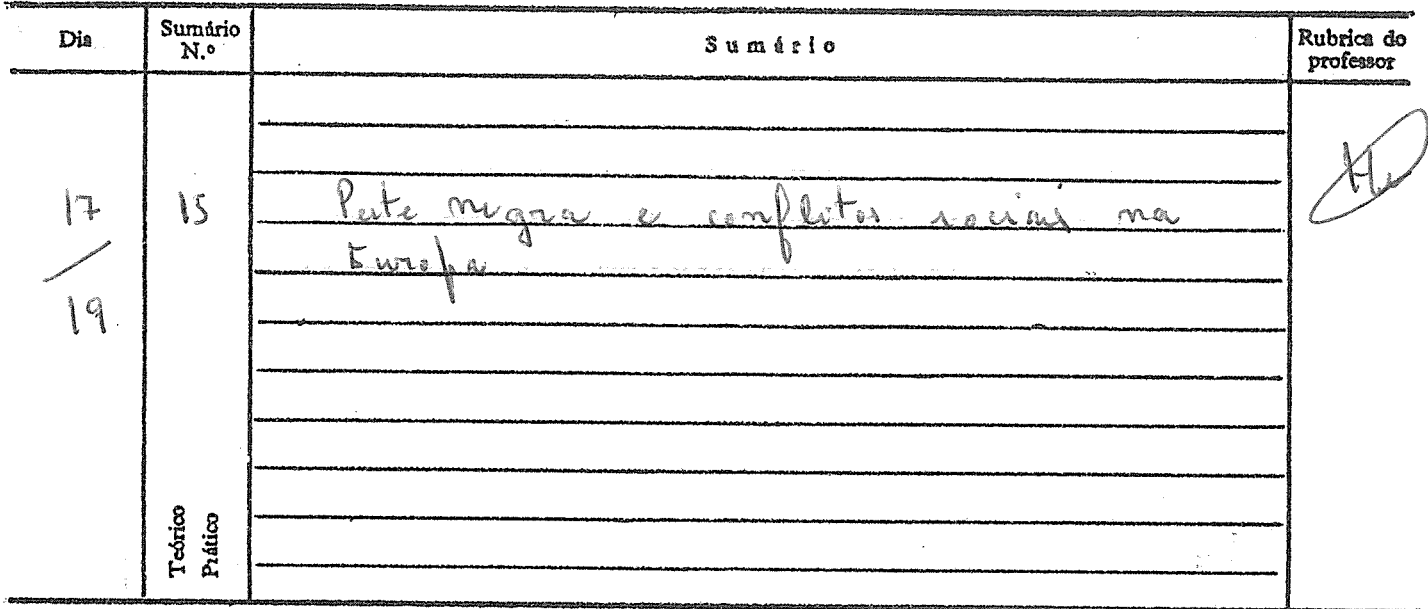 Dia
Sumário N.º
Sumário
Rubrica do professor
17
15
Peste negra e conflitos sociais na
Europa
19
Teórico
Prático